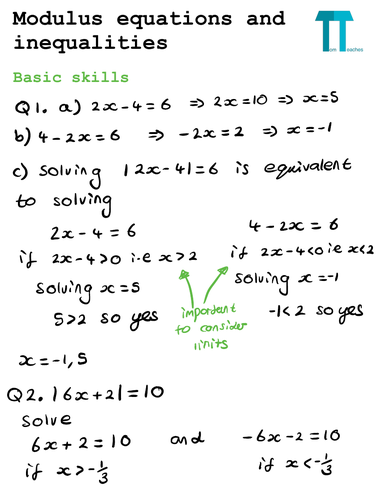 Modulus equations and
inequalities
Tom
Teaches
Basic skills
Q1. a) 2x-4=6 ⇒ 2x=10 ⇒ x=5
b) 4-2x=6 ⇒ -2x=2 ⇒ x=-1
c) solving |2x-4|=6 is equivalent
to solving
2x-4=6
4-2x=6
if 2x-4>0 i.e x>2
if 2x-4<0 ie x<2
solving x=5
solving x=-1
5>2 so yes
-1<2 so yes
important
to consider
limits
x=-1,5
Q2. |6x+2|=10
solve
6x+2=10 and -6x-2=10
if x>-1/3
if x<-1/3